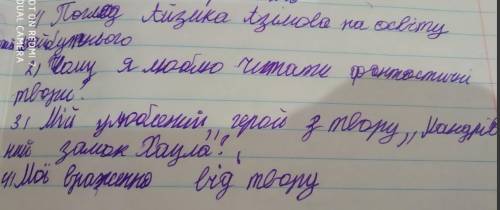 1) Погляд Айзика Азімова на освіту
майбутнього
2) Чому я люблю читати фантастичні
твори?
3) Мій улюблений „ герой з твору „ Мандрів
ний замок Хаула?
4) Мої враження від твору